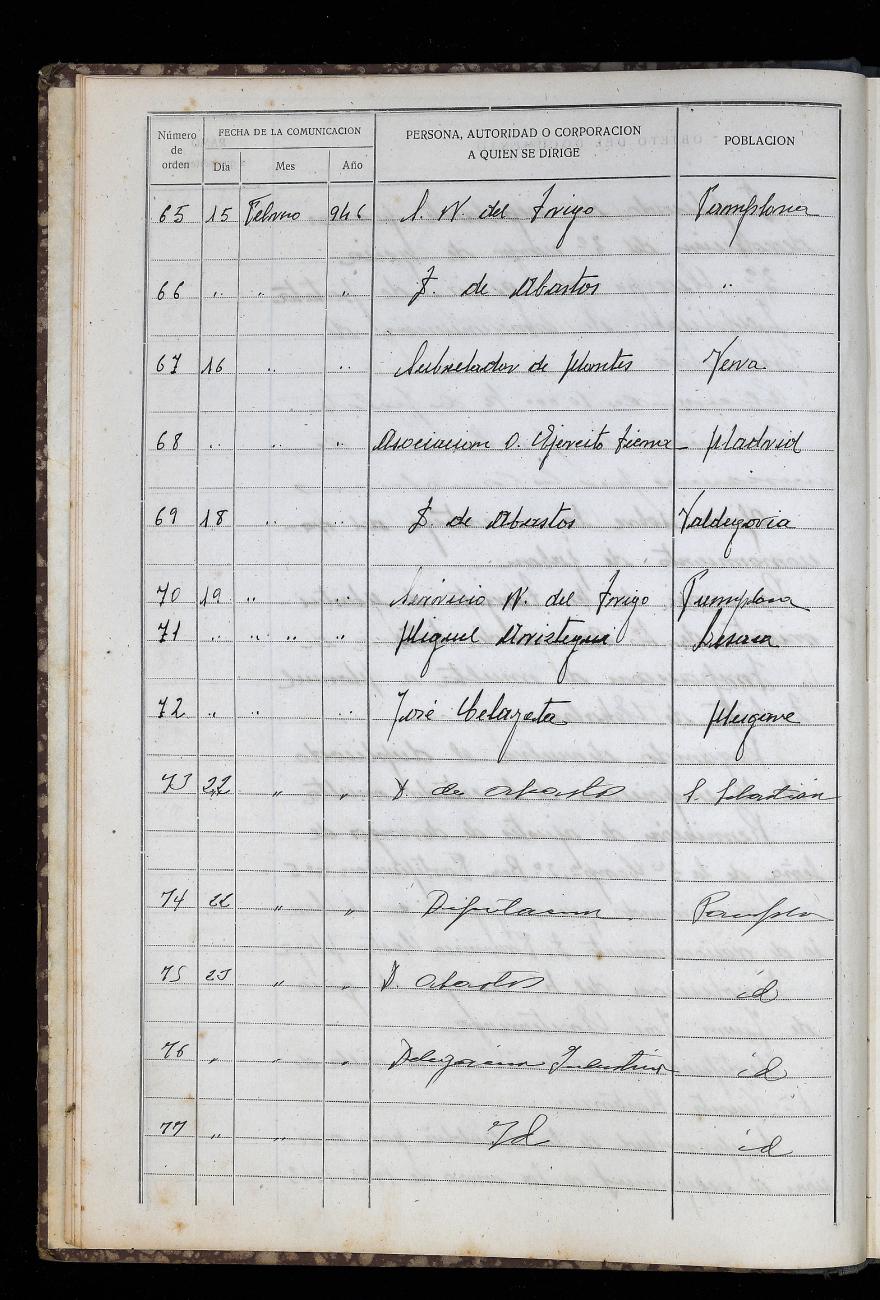 Número de orden FECHA DE LA COMUNICACION Día Mes Año PERSONA, AUTORIDAD O CORPORACION A QUIEN SE DIRIGE POBLACION
65 15 Febrero 946 S. N. del Trigo Pamplona
66 " " " D. de Abastos "
67 16 " " de Montes Vera
68 " " " Asociacion O. Ejercito tierra Madrid
69 18 " " D. de Abastos Valdegovia
70 19 " " Servicio N. del Trigo Pamplona
71 " " " " Miguel Aristegui Lesaca
72 " " " José Celayeta Mugaire
73 22 " " D. de Abastos S. Sebastian
74 22 " " Diputacion Pamplo
75 23 " " D. Abastos id
76 " " " Delegacion Industria id
77 " " Id id